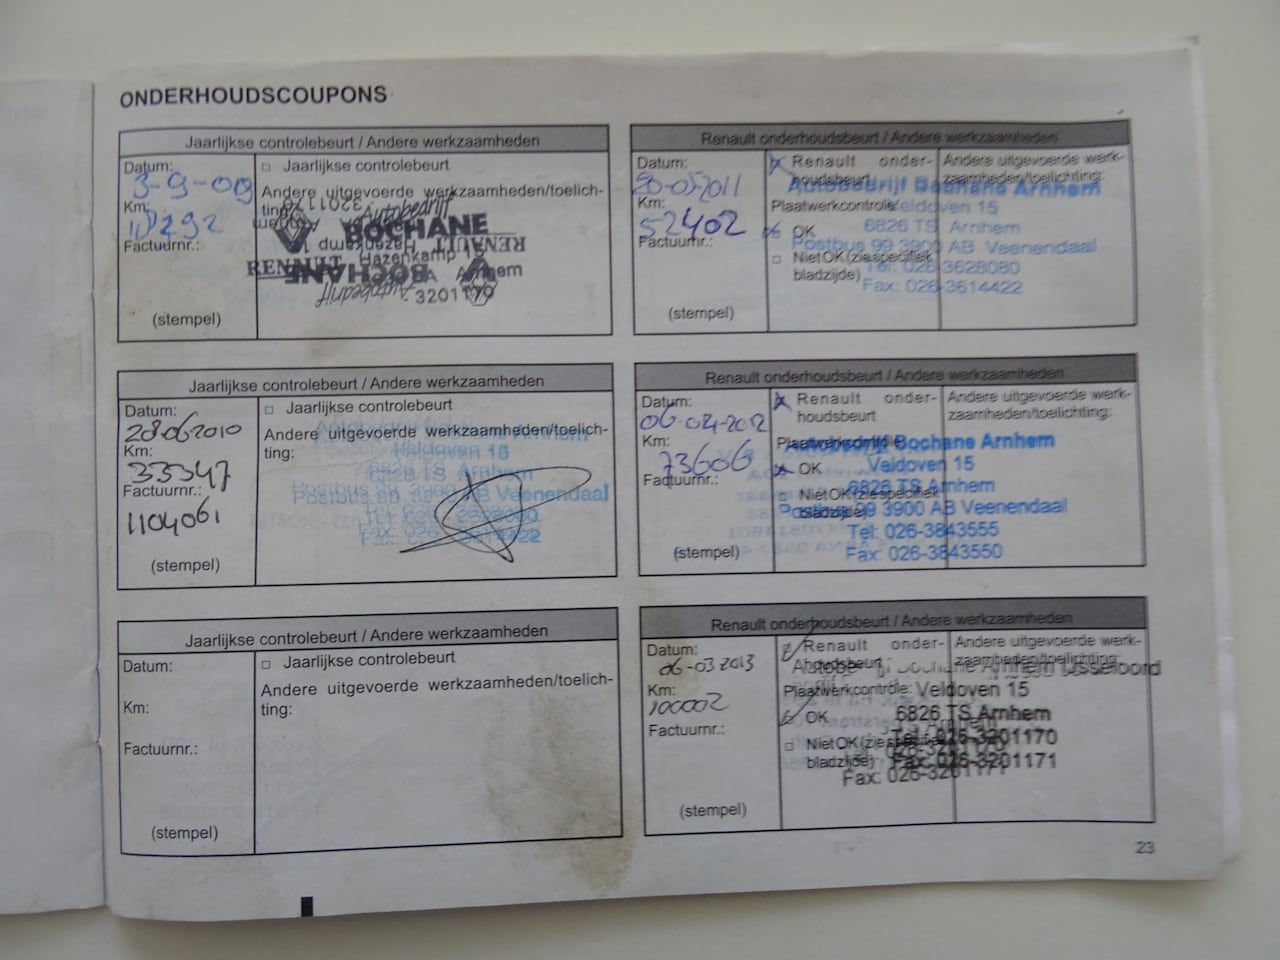 ONDERHOUDSCOUPONS
Jaarlijkse controlebeurt / Andere werkzaamheden
Datum:
3-9-09
Km:
Factuurnr.:
(stempel)
□ Jaarlijkse controlebeurt
Andere uitgevoerde werkzaamheden/toelich-
ting:
Autobedrijf
BOCHANE
RENAULT
Hazenkamp 15
Arnhem
3201170
Renault onderhoudsbeurt / Andere werkzaamheden
Datum:
20-05-2011
Km:
52402
Factuurnr.:
(stempel)
Renault onder-
houdsbeurt
Plaatwerkcontrole:
OK
□ Niet OK (zie specifiek
bladzijde)
Andere uitgevoerde werk-
zaamheden/toelichting:
Autobedrijf Bochane Arnhem
Veldoven 15
6826 TS Arnhem
Postbus 99 3900 AB Veenendaal
Tel: 026-3628080
Fax: 026-3614422
Jaarlijkse controlebeurt / Andere werkzaamheden
Datum:
28-06-2010
Km:
33347
Factuurnr.:
1104061
(stempel)
□ Jaarlijkse controlebeurt
Andere uitgevoerde werkzaamheden/toelich-
ting:
Veldoven 15
6826 TS Arnhem
Postbus 99 3900 AB Veenendaal
Renault onderhoudsbeurt / Andere werkzaamheden
Datum:
06-04-2012
Km:
73606
Factuurnr.:
(stempel)
Renault onder-
houdsbeurt
Plaatwerkcontrole
OK
□ Niet OK (zie specifiek
bladzijde)
Andere uitgevoerde werk-
zaamheden/toelichting:
Autobedrijf Bochane Arnhem
Veldoven 15
6826 TS Arnhem
Postbus 99 3900 AB Veenendaal
Tel: 026-3843555
Fax: 026-3843550
Jaarlijkse controlebeurt / Andere werkzaamheden
Datum:
Km:
Factuurnr.:
(stempel)
□ Jaarlijkse controlebeurt
Andere uitgevoerde werkzaamheden/toelich-
ting:
Renault onderhoudsbeurt / Andere werkzaamheden
Datum:
06-03-2013
Km:
100002
Factuurnr.:
(stempel)
Renault onder-
houdsbeurt
Plaatwerkcontrole:
OK
□ Niet OK (zie specifiek
bladzijde)
Andere uitgevoerde werk-
zaamheden/toelichting:
Bochane Arnhem IJsseloord
Veldoven 15
6826 TS Arnhem
Tel: 026-3201170
Fax: 026-3201171
23